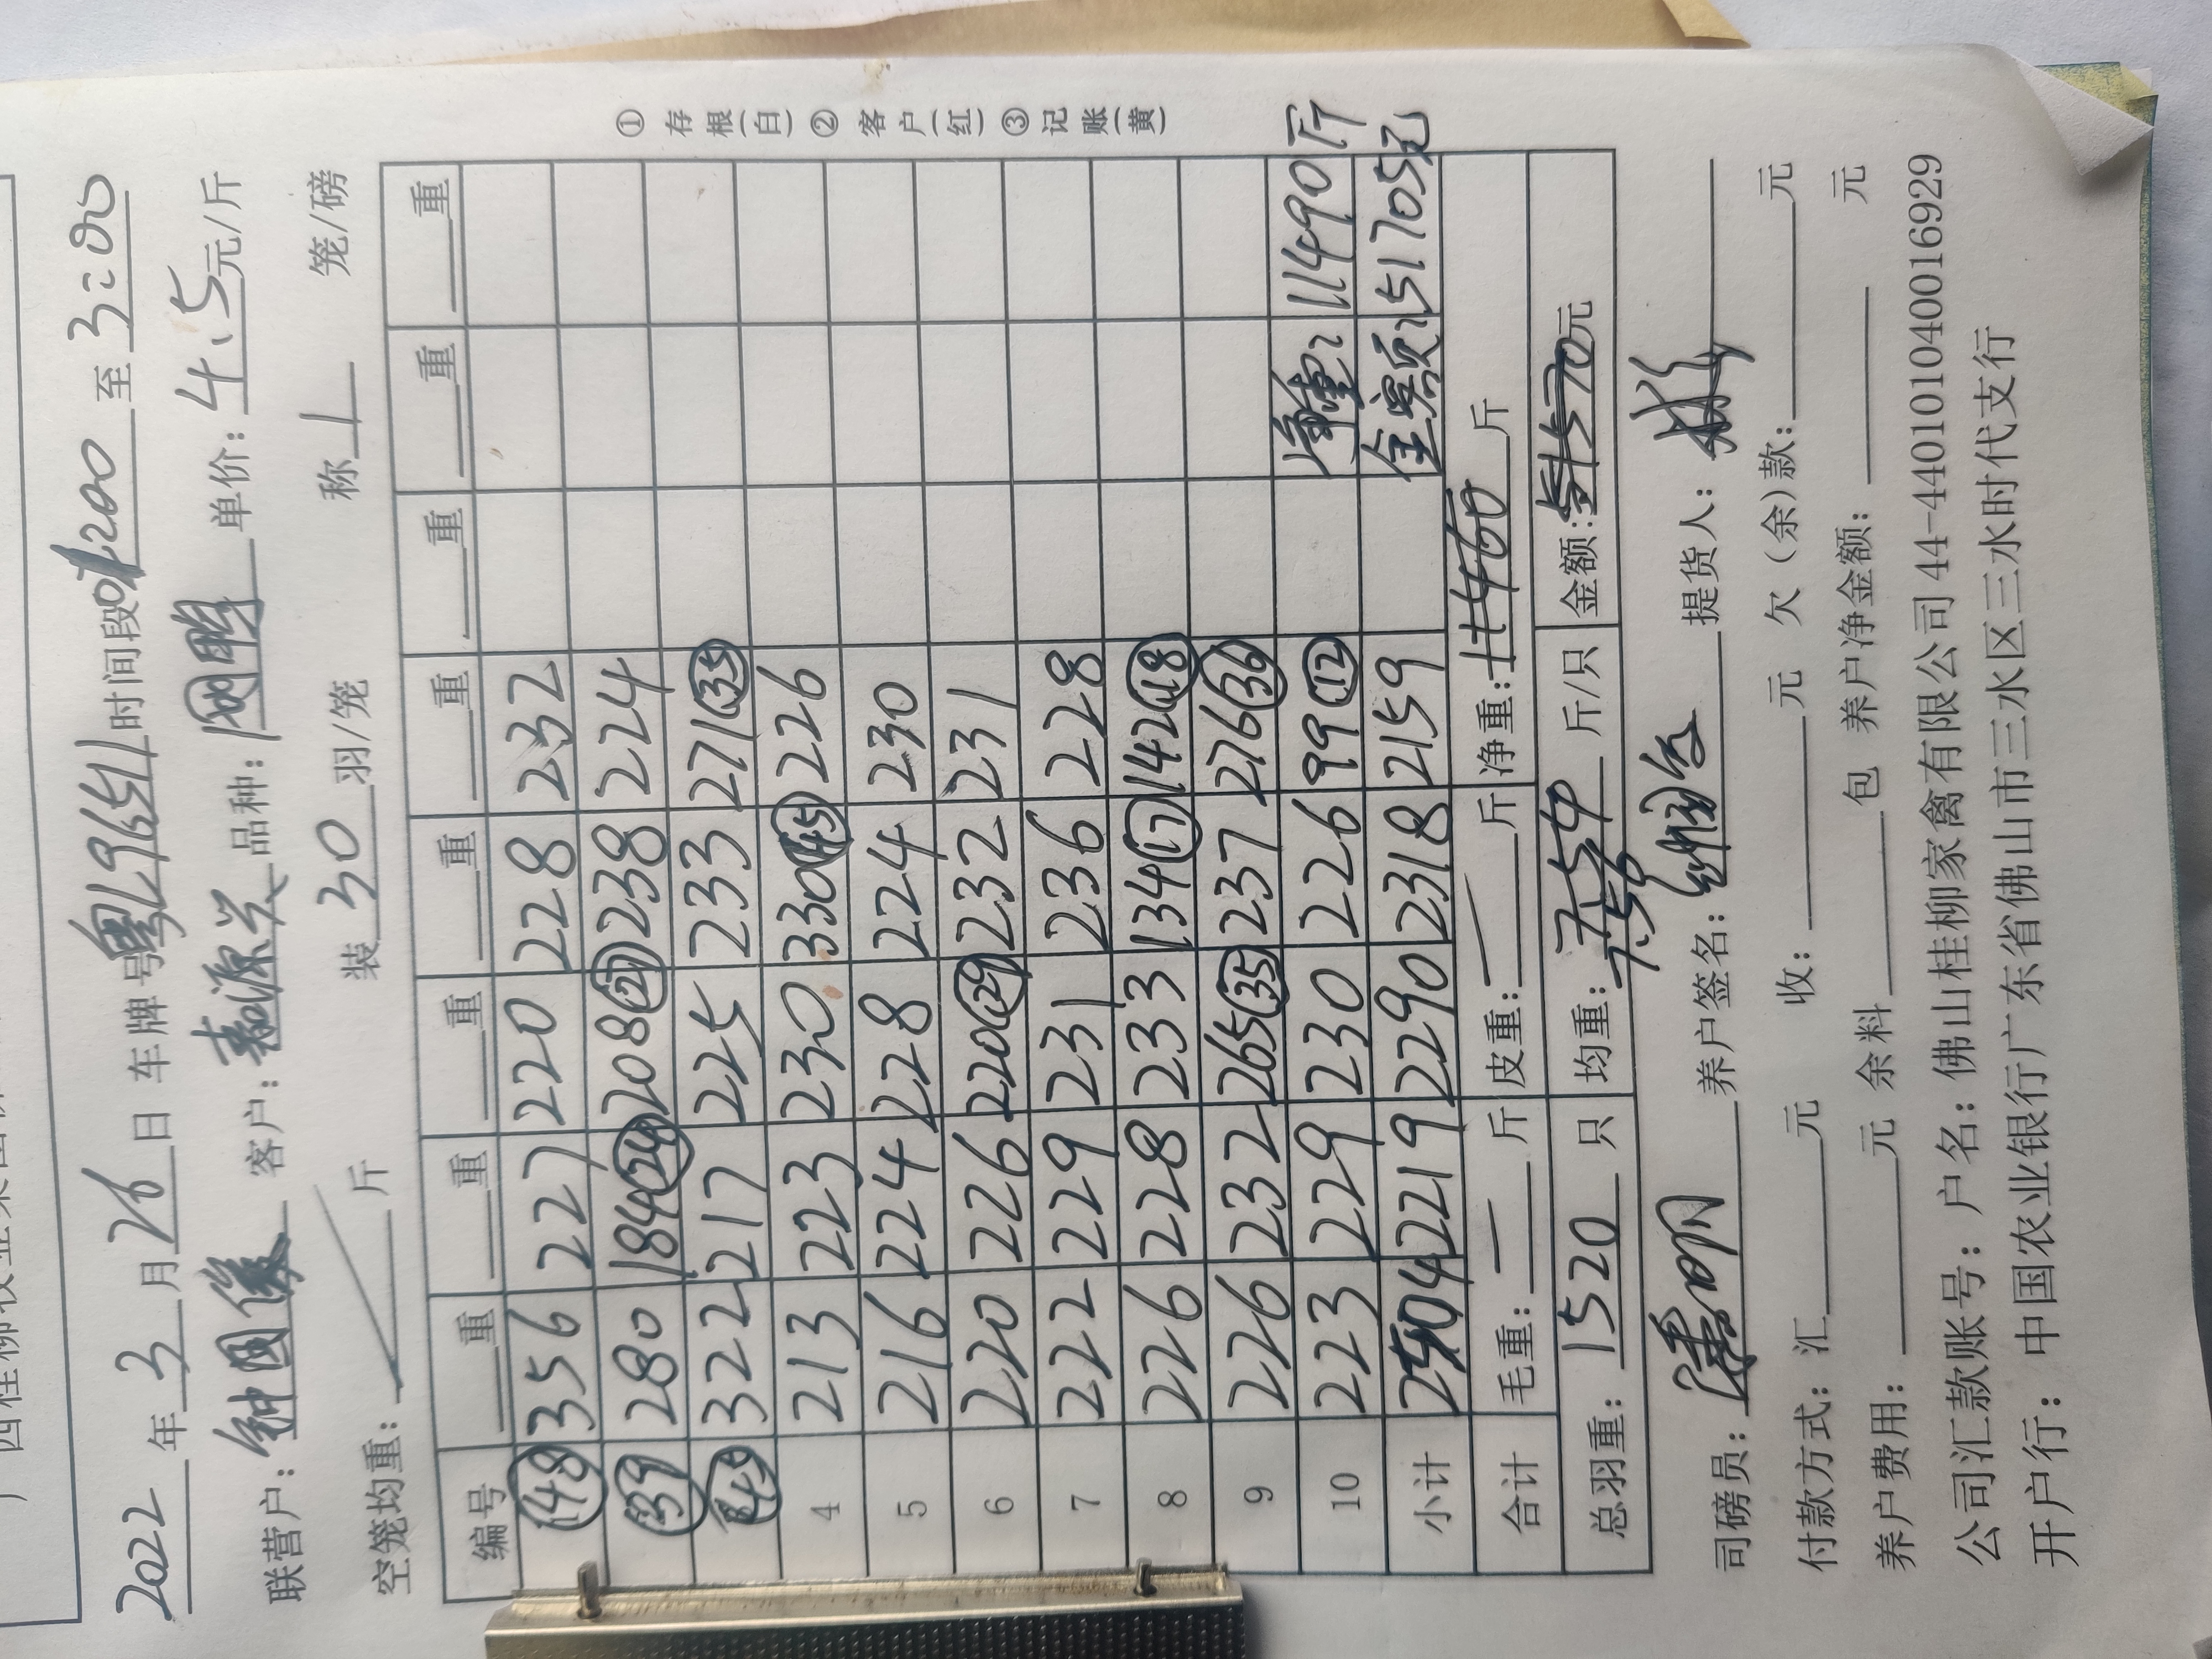 2022年3月26日 车牌号粤L9651 时间段01:200至3:00
联营户: 钟国俊 客户: 品种: 单价: 4.5元/斤
空笼均重: 斤 装30羽/笼 称1 笼/磅
编号 重 重 重 重 重 重 重 重
(48) 356 227 220 228 232
(39) 280 184(24) 208(27) 238 224
(45) 322 217 225 233 271(35)
4 213 223 230 330(45) 226
5 216 224 228 224 230
6 220 226 220(29) 232 231
7 222 229 231 236 228
8 226 228 233 134(17) 142(18)
9 226 232 265(35) 237 276(36)
10 223 229 230 226 99(12) 净重: 11490斤
小计 2504 2219 2290 2318 2159 金额: 51705元
合计 毛重: 斤 皮重: 斤 净重: 11460 斤
总羽重: 1520 只 均重: 7.54 7.56 斤/只 金额: 51570元
司磅员: 养户签名: 提货人:
付款方式: 汇 元 收: 元 欠(余)款: 元
养户费用: 元 余料 包 养户净金额: 元
公司汇款账号: 户名: 佛山桂柳家禽有限公司 44-440101040016929
开户行: 中国农业银行广东省佛山市三水区三水时代支行
①存根(白) ②客户(红) ③记账(黄)